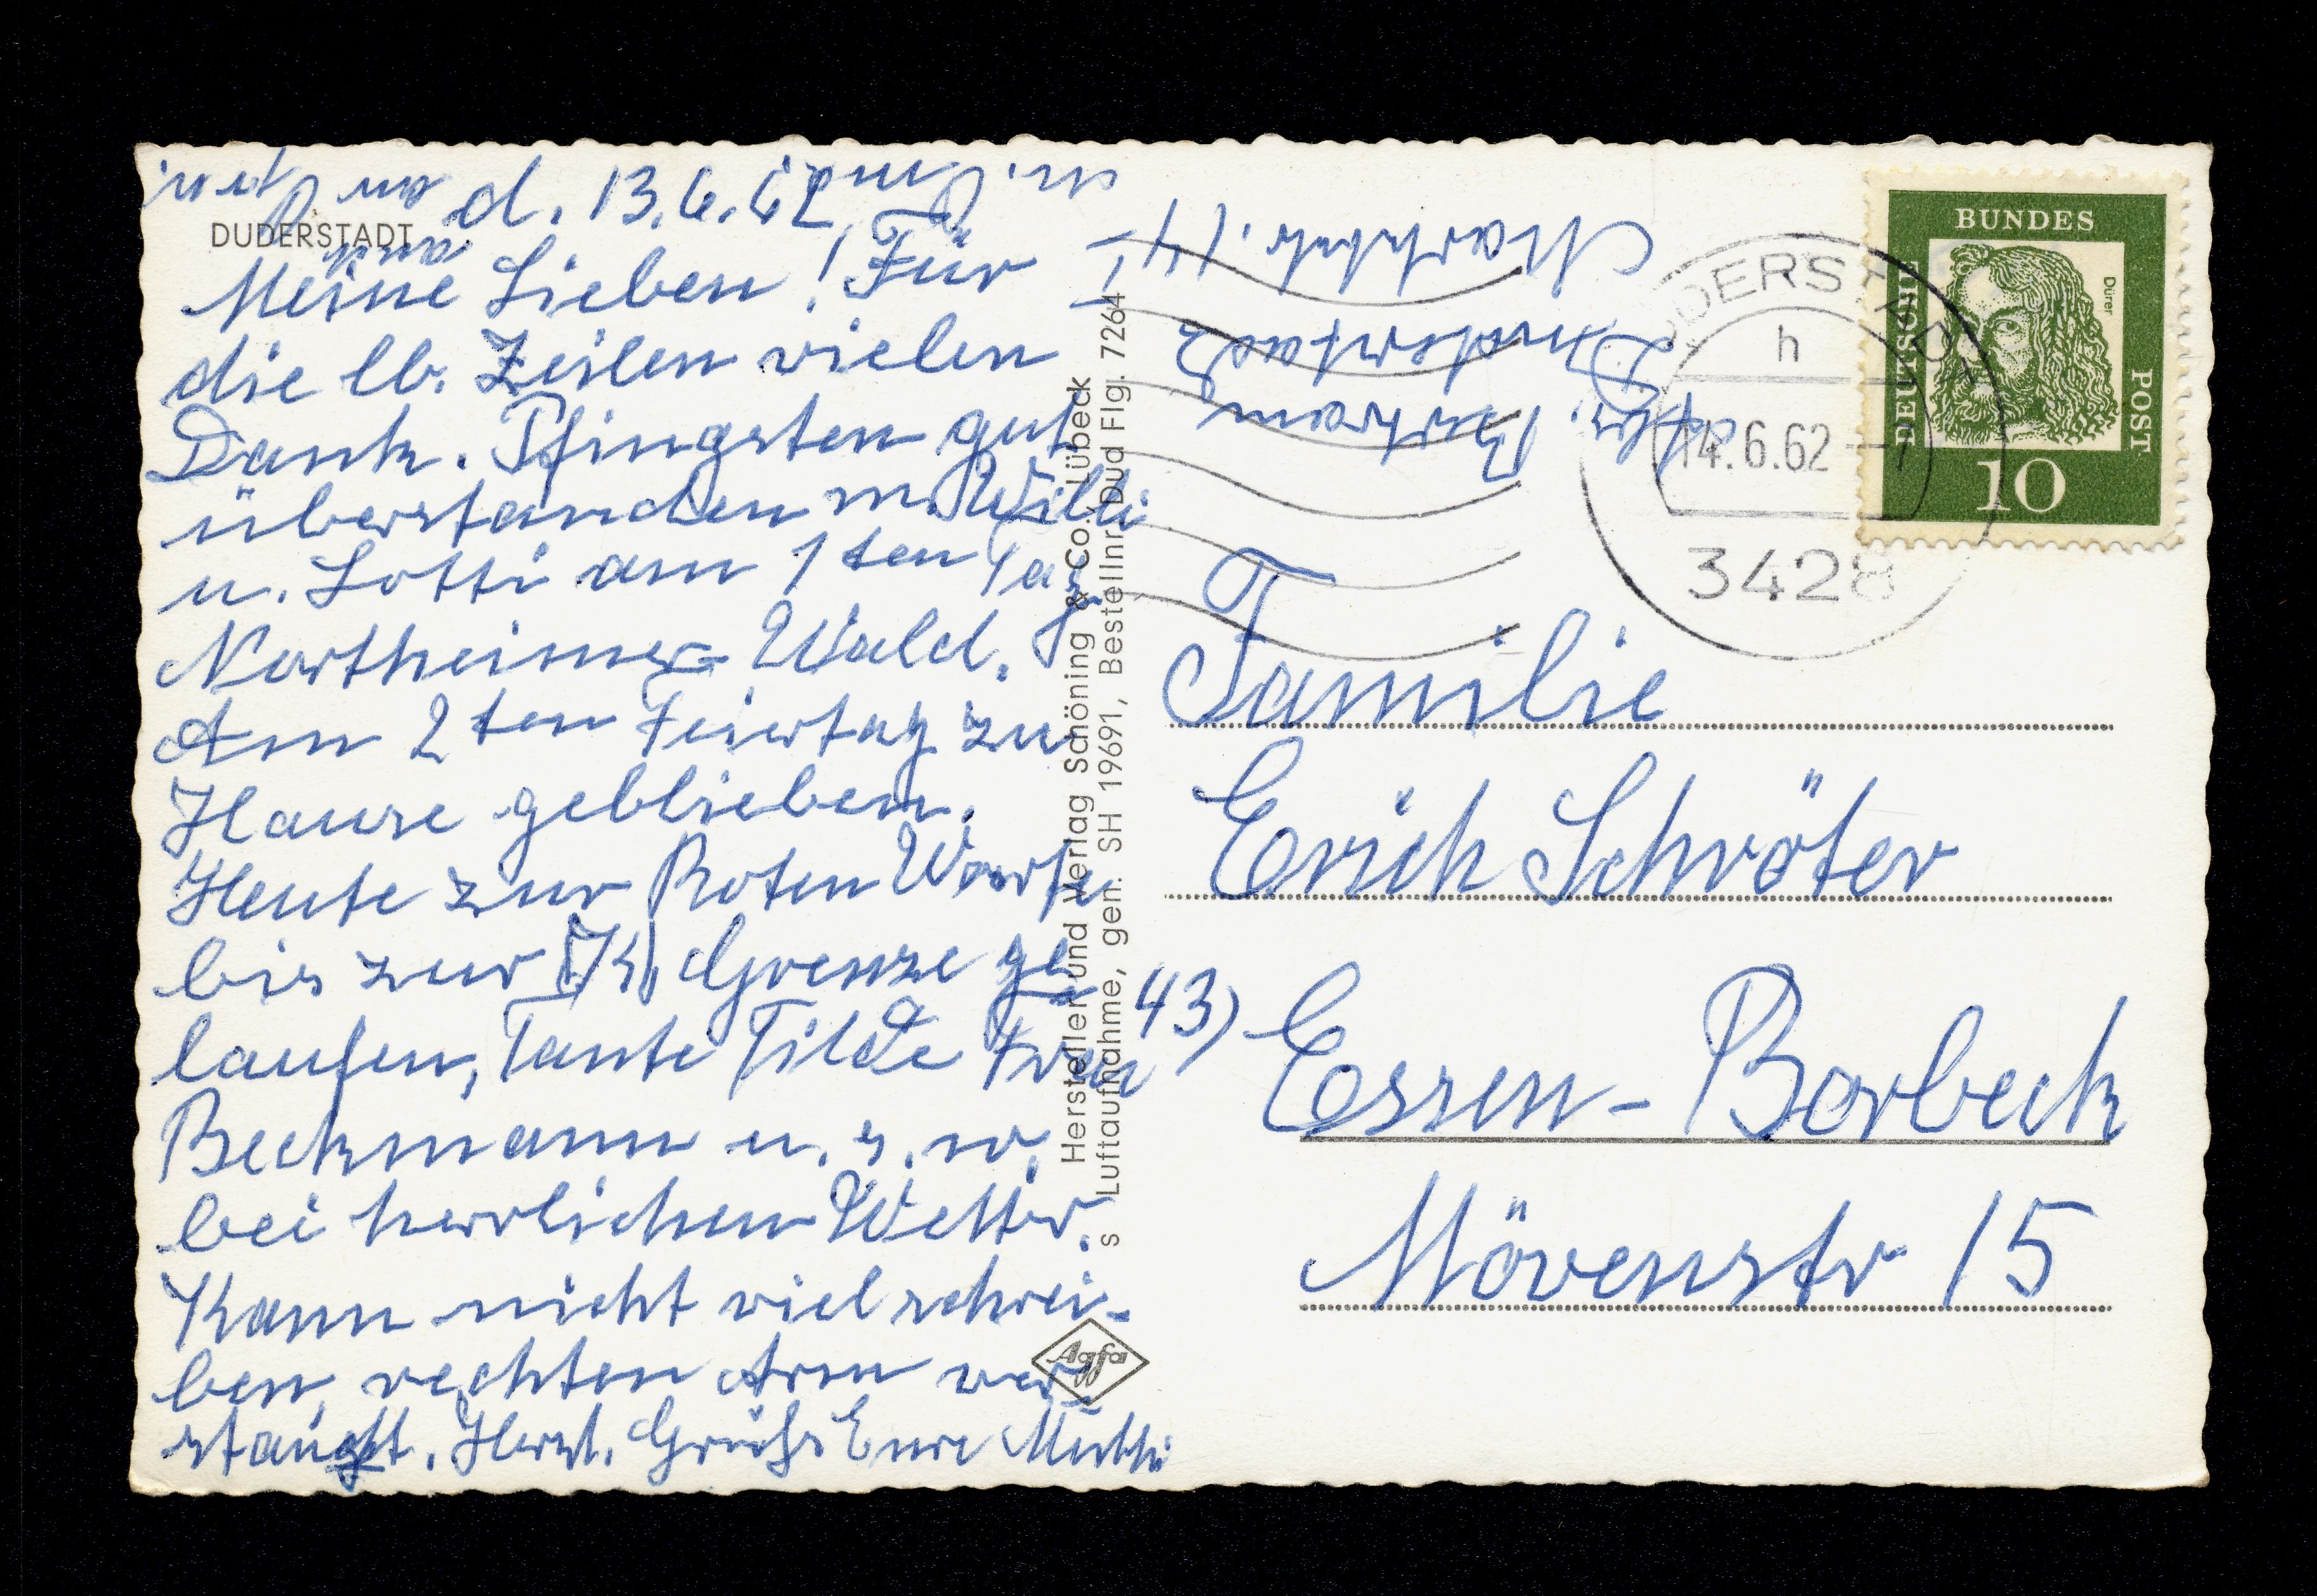 DUDERSTADT
d. 13.6.62
Meine Lieben! Für
die lb. Zeilen vielen
Dank. Pfingsten gut
überstanden m. Willi
u. Lotti am 1ten Tag
Northeimer Wald.
Am 2ten Feiertag zu
Hause geblieben.
Heute zur Roten Warte
bis zur Grenze ge
laufen, Tante Tilde Frau
Beckmann u.s.w.
bei herrlichen Wetter.
Kann nicht viel schrei-
ben, rechten Arm ver-
staucht. Herzl. Grüße Eure Mutti
Hersteller und Verlag Schöning & Co., Lübeck
s Luftaufnahme, gen. SH 19691, Bestellnr. Dud Flg. 7264
Agfa
Abs. Bertram
Duderstadt
Marktstr. 14
DEUTSCHE
BUNDES
POST
Dürer
10
DUDERSTADT
h
14.6.62
3428
Familie
Erich Schröter
43) Essen-Borbeck
Mövenstr 15